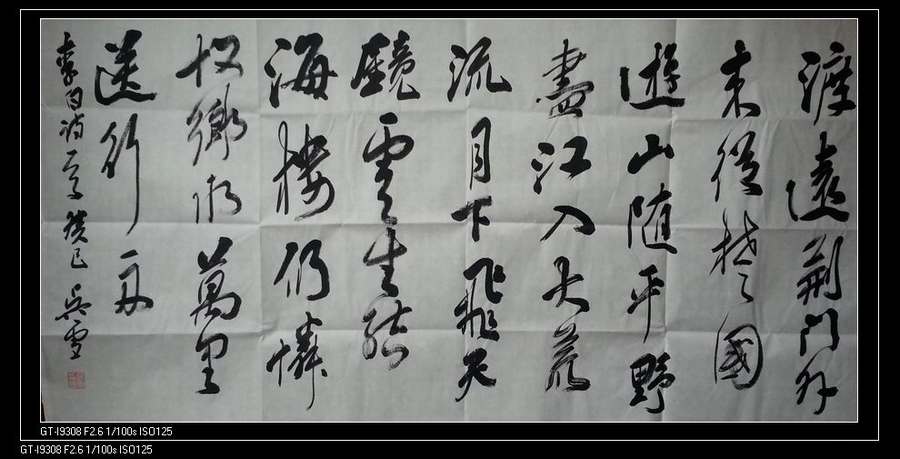 渡遠荆門外
来從楚國
遊山随平野
盡江入大荒
流月下飛天
鏡雲生結
海樓仍憐
故鄉水萬里
送行舟
李白诗一首 癸巳 吴雪
GT-I9308 F2.6 1/100s ISO125
GT-I9308 F2.6 1/100s ISO125